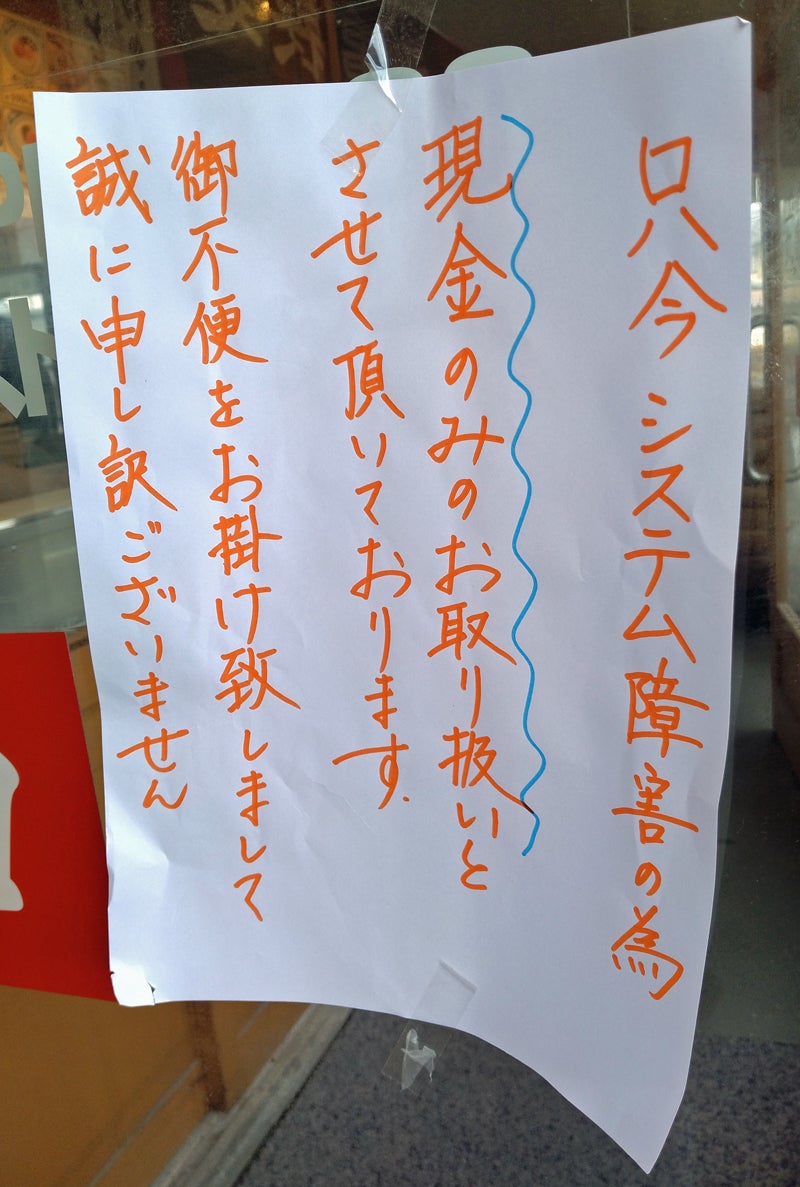 只今システム障害の為
現金のみのお取り扱いと
させて頂いております.
御不便をお掛け致しまして
誠に申し訳ございません